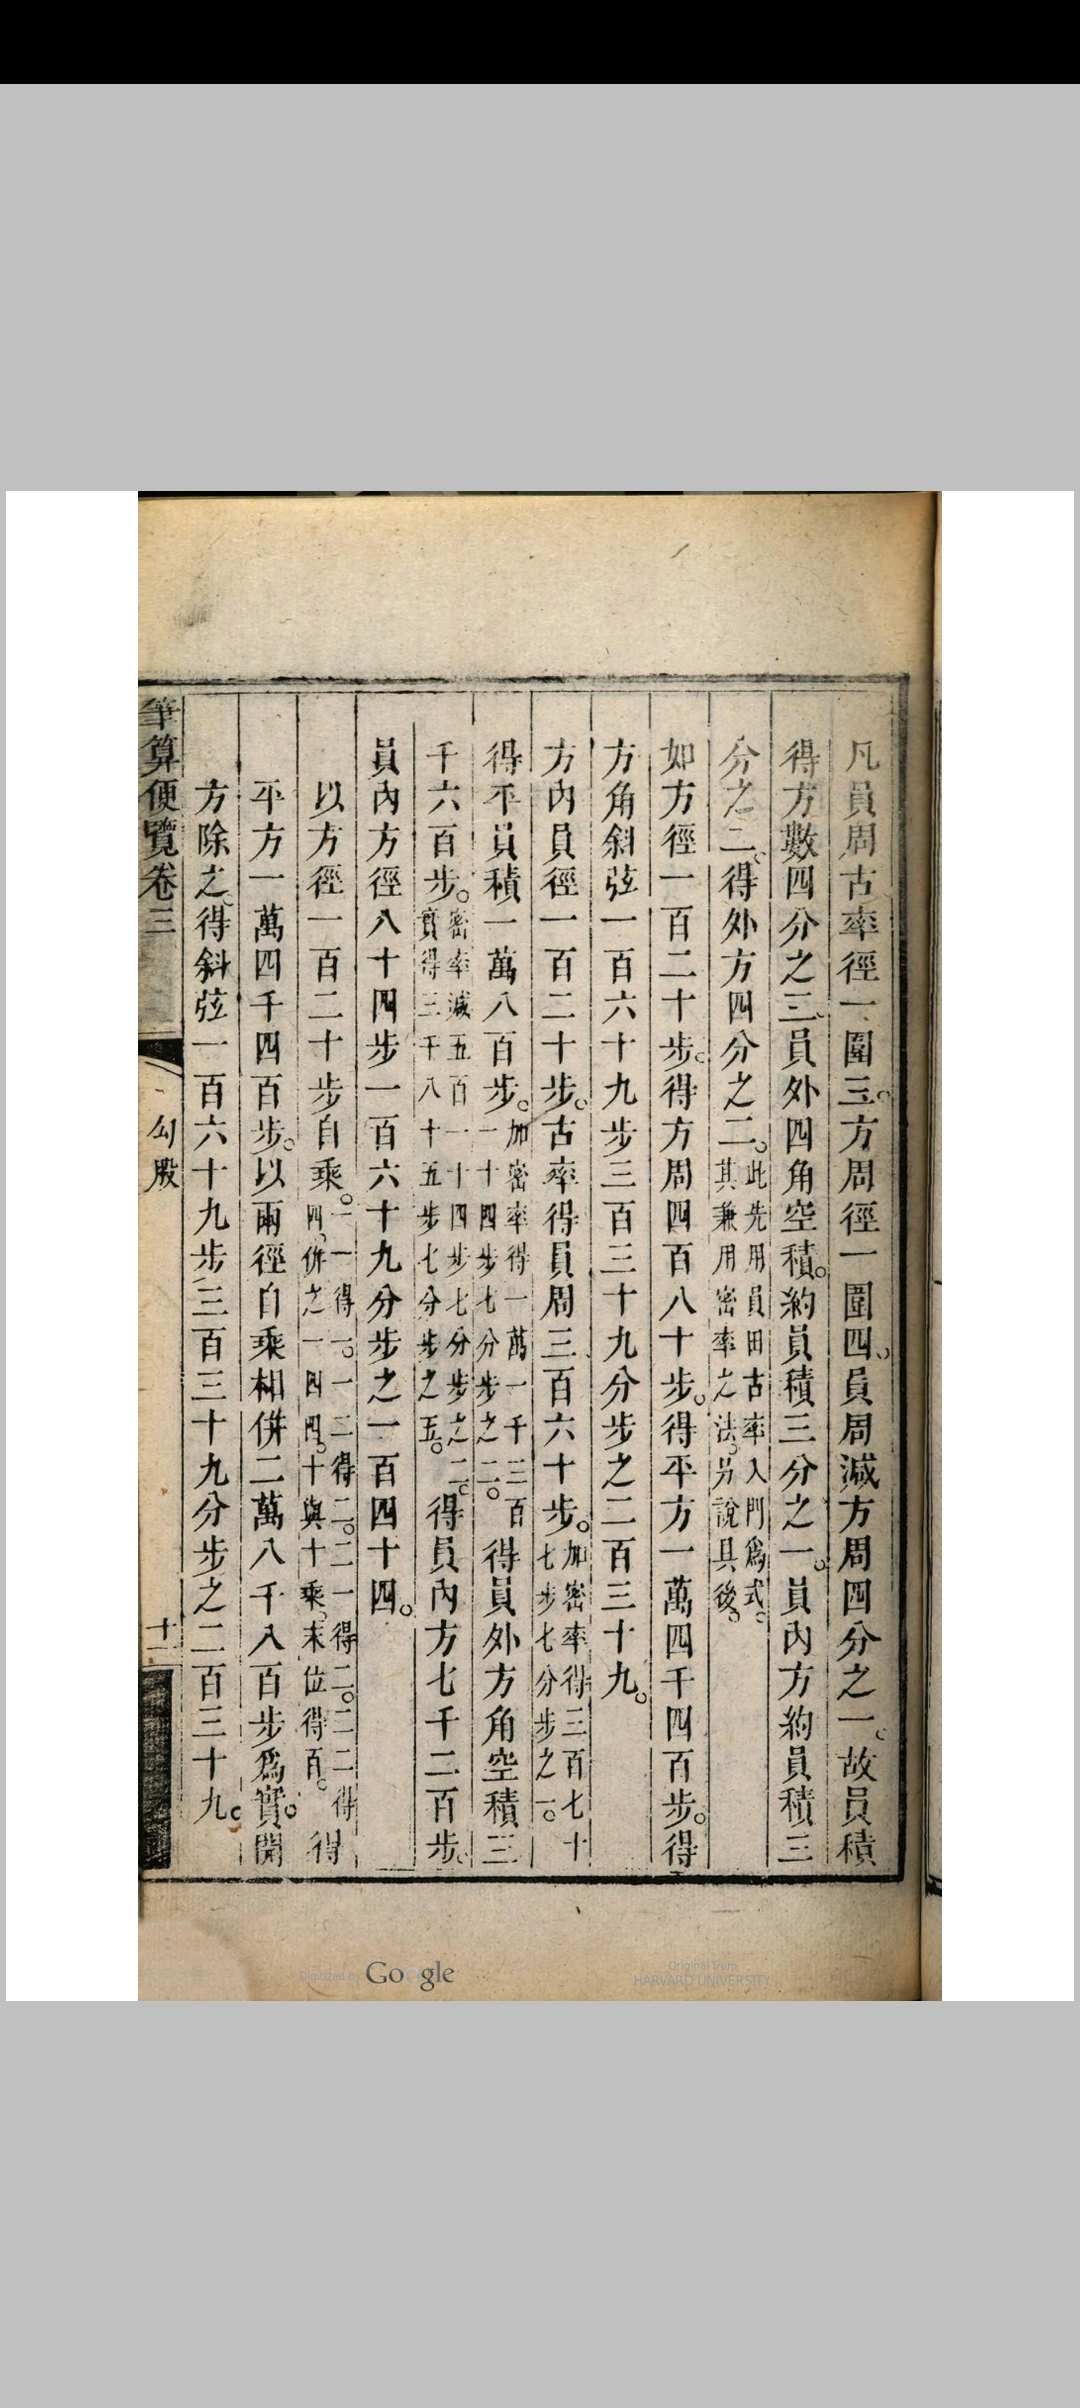 凡員周古率徑一圍三。方周徑一圍四。員周減方周四分之一。故員積
得方數四分之三。員外四角空積。約員積三分之一。員內方約員積三
分之二。得外方四分之二。此先用員田古率入門爲式。其兼用密率之法。另說具後。
如方徑一百二十步。得方周四百八十步。得平方一萬四千四百步。得
方角斜弦一百六十九步三百三十九分步之二百三十九。
方內員徑一百二十步。古率得員周三百六十步。加密率得三百七十七步七分步之一。
得平員積一萬八百步。加密率得一萬一千三百一十四步七分步之二。得員外方角空積三
千六百步。密率減五百一十四步七分步之二。實得三千八十五步七分步之五。得員內方七千二百步。
員內方徑八十四步一百六十九分步之一百四十四。
以方徑一百二十步自乘。一一得一。一二得二。二一得二。二二得四。併之一四四。十與十乘。末位得百。得
平方一萬四千四百步。以兩徑自乘相併二萬八千八百步爲實。開
方除之。得斜弦一百六十九步三百三十九分步之二百三十九。
筆算便覽卷三
勾股
十一
Digitized by Google
Original from
HARVARD UNIVERSITY